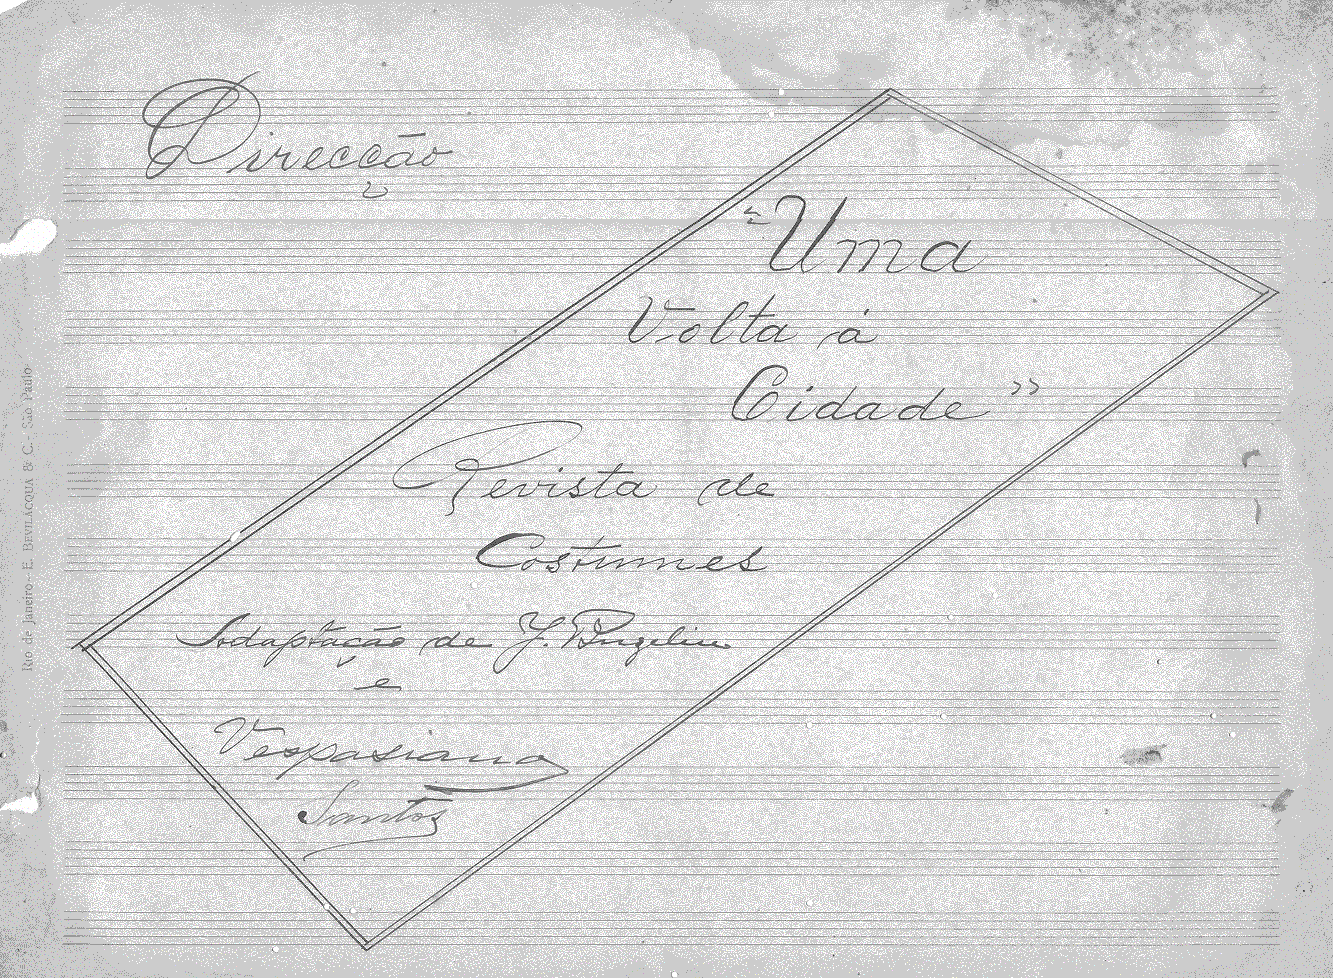 Direcção
"Uma
Volta á
Cidade"
Revista de
Costumes
Adaptação de J.
e
Vespasiano
Santos
Rio de Janeiro - E. BEVILACQUA & C. - São Paulo